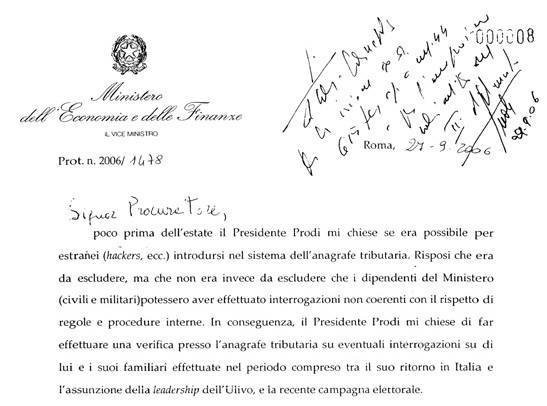 000008
Ministero
dell'Economia e delle Finanze
IL VICE MINISTRO
Prot. n. 2006/ 1478
Roma, 27-9.2006
27.9.06
Signor Procuratore,
poco prima dell'estate il Presidente Prodi mi chiese se era possibile per
estranei (hackers, ecc.) introdursi nel sistema dell'anagrafe tributaria. Risposi che era
da escludere, ma che non era invece da escludere che i dipendenti del Ministero
(civili e militari)potessero aver effettuato interrogazioni non coerenti con il rispetto di
regole e procedure interne. In conseguenza, il Presidente Prodi mi chiese di far
effettuare una verifica presso l'anagrafe tributaria su eventuali interrogazioni su di
lui e i suoi familiari effettuate nel periodo compreso tra il suo ritorno in Italia e
l'assunzione della leadership dell'Ulivo, e la recente campagna elettorale.